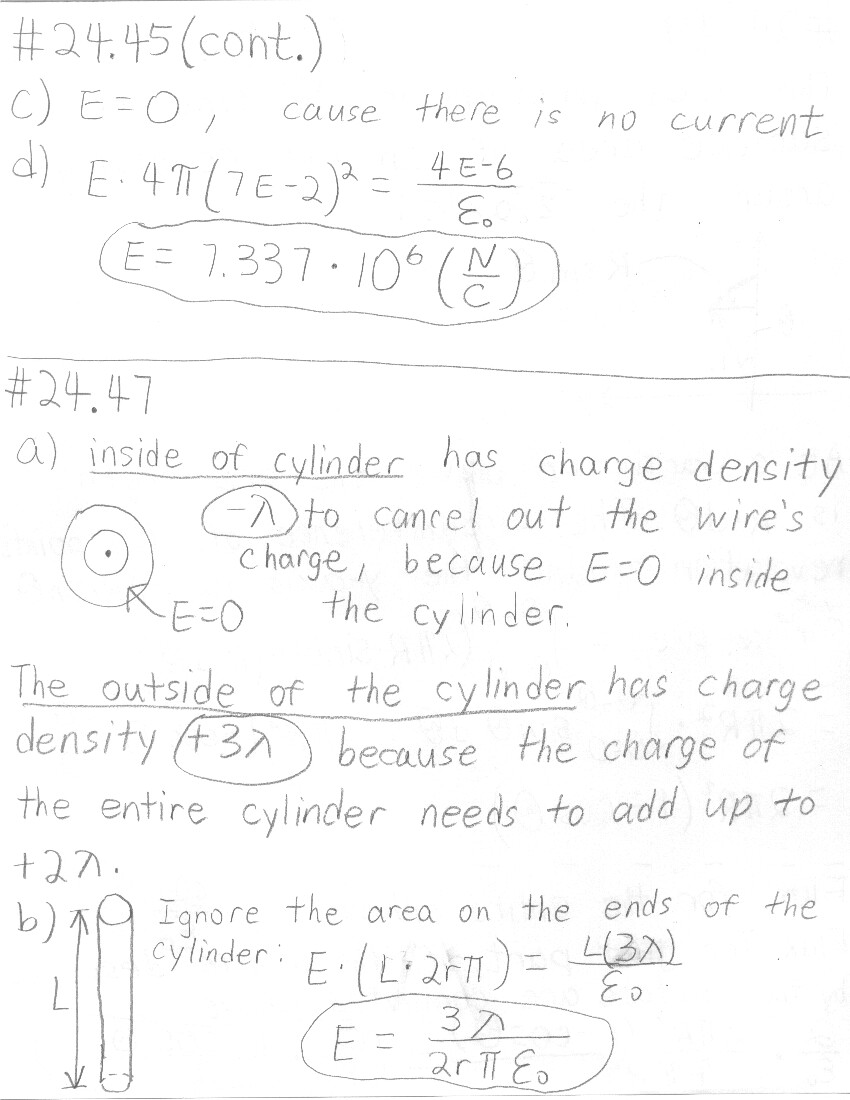 #24.45(cont.)
c) E=0, cause there is no current
d) E · 4π(7E-2)² = 4E-6/ε₀
E = 7.337 · 10⁶ (N/C)
#24.47
a) inside of cylinder has charge density
-λ to cancel out the wire's
charge, because E=0 inside
E=0 the cylinder.
The outside of the cylinder has charge
density +3λ because the charge of
the entire cylinder needs to add up to
+2λ.
b) Ignore the area on the ends of the
cylinder: E·(L·2rπ) = L(3λ)/ε₀
L
E = 3λ/2rπε₀